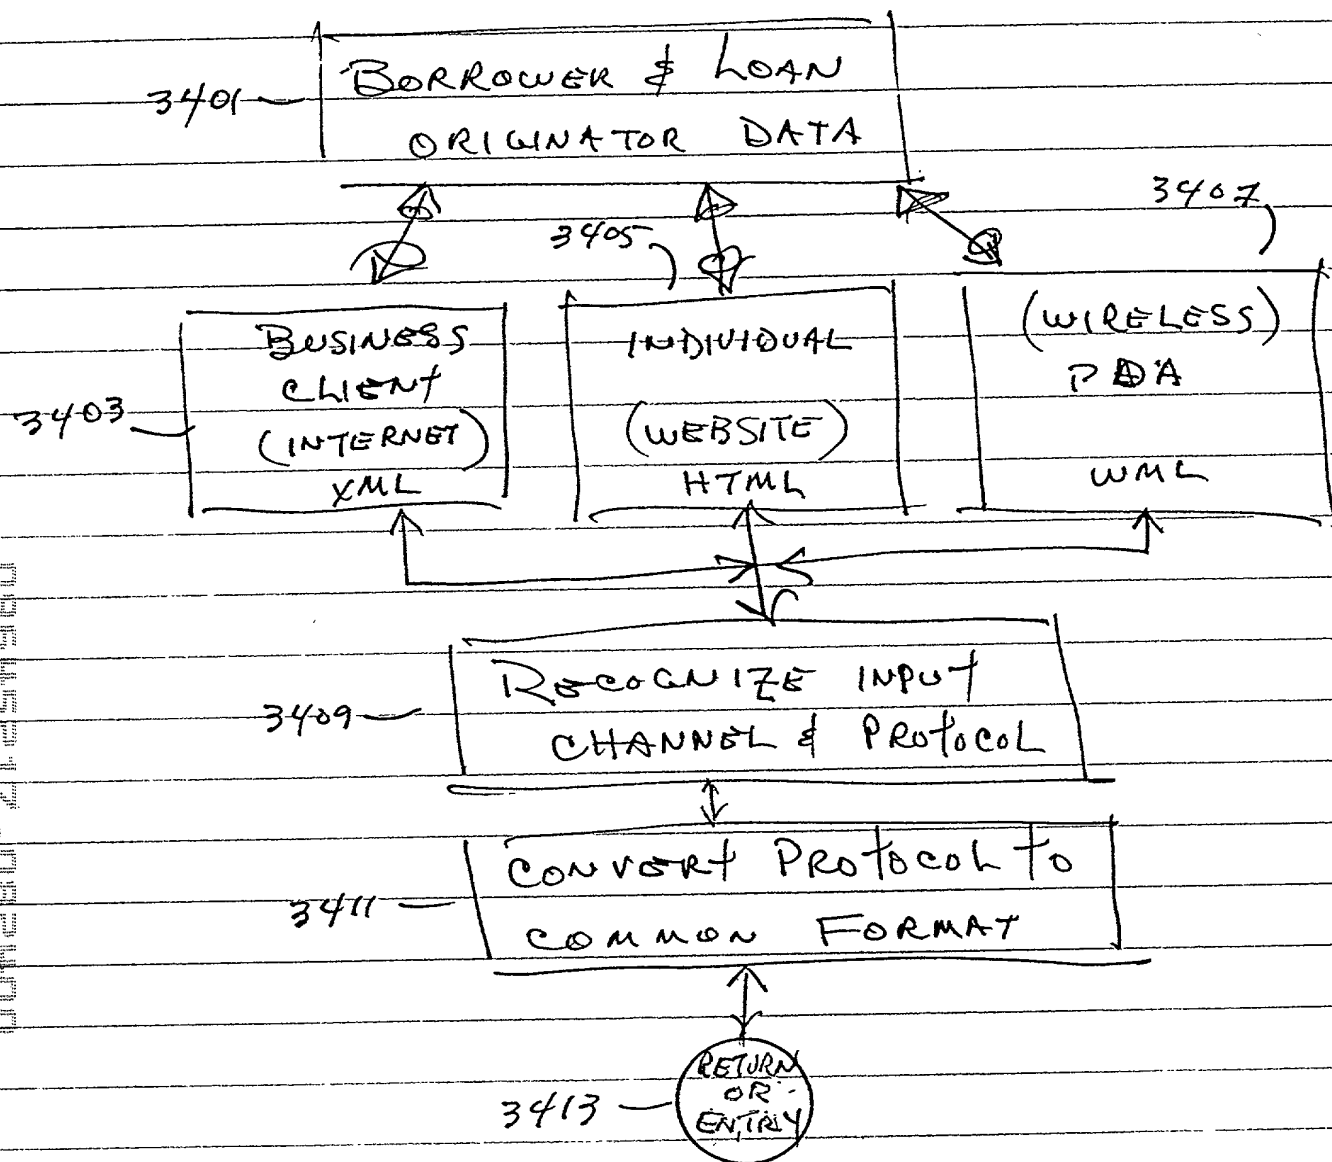 3401
BORROWER & LOAN
ORIGINATOR DATA
3403
BUSINESS
CLIENT
(INTERNET)
XML
3405
INDIVIDUAL
(WEBSITE)
HTML
3407
(WIRELESS)
PDA
WML
3409
RECOGNIZE INPUT
CHANNEL & PROTOCOL
3411
CONVERT PROTOCOL TO
COMMON FORMAT
3413
RETURN
OR
ENTRY